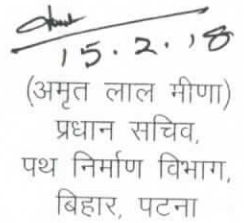 15.2.18
(अमृत लाल मीणा)
प्रधान सचिव,
पथ निर्माण विभाग,
बिहार, पटना